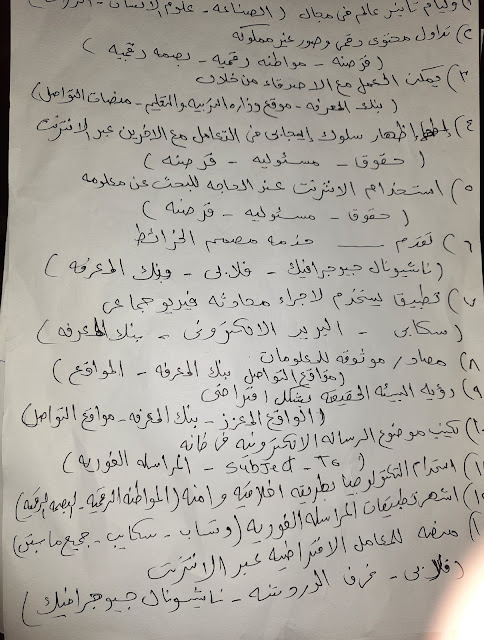 وليام تايتر عالم فى مجال ( الصناعه - علوم الانسان -
٢) تداول محتوى رقمى وصور غير مملوكه
( قرصنه - مواطنه رقميه - بصمه رقميه )
٣) يمكن العمل مع الاصدقاء من خلال
( بنك المعرفه - موقع وزاره التربيه والتعليم - منصات التواصل)
٤) إظهار سلوك إيجابى فى التعامل مع الاخرين عبر الانترنت
( حقوق - مسئوليه - قرصنه )
٥) استخدام الانترنت عند الحاجه للبحث عن معلومه
( حقوق - مسئوليه - قرصنه )
٦) تقدم ــــــ خدمه مصمم الخرائط
(ناشيونال جيوجرافيك - فلابى - وبنك المعرفه )
٧) تطبيق يستخدم لاجراء محادثه فيديو جماعى
( سكايى - البريد الالكترونى - بنك المعرفه )
٨) مصادر موثوقه للمعلومات
(مواقع التواصل بنك المعرفه - المواقع )
٩) رؤيه البيئه الحقيقه بشكل افتراضى
( الواقع المعزز - بنك المعرفه - مواقع التواصل)
١٠) تكيتب موضوع الرساله الالكترونيه فى خانه
( To - subject - المراسله الفوريه )
١١) استخدام التكنولوجيا بطريقه اخلاقيه وامنه (المواطنه الرقميه - البصمه الرقميه)
١٢) اشهر تطبيقات المراسله الفوريه (وتساب - سكايب - جميع ماسبق)
منصه للمعامل الافتراضيه عبر الانترنت
( فلابى - غرف الدردشه - ناشيونال جيوجرافيك )